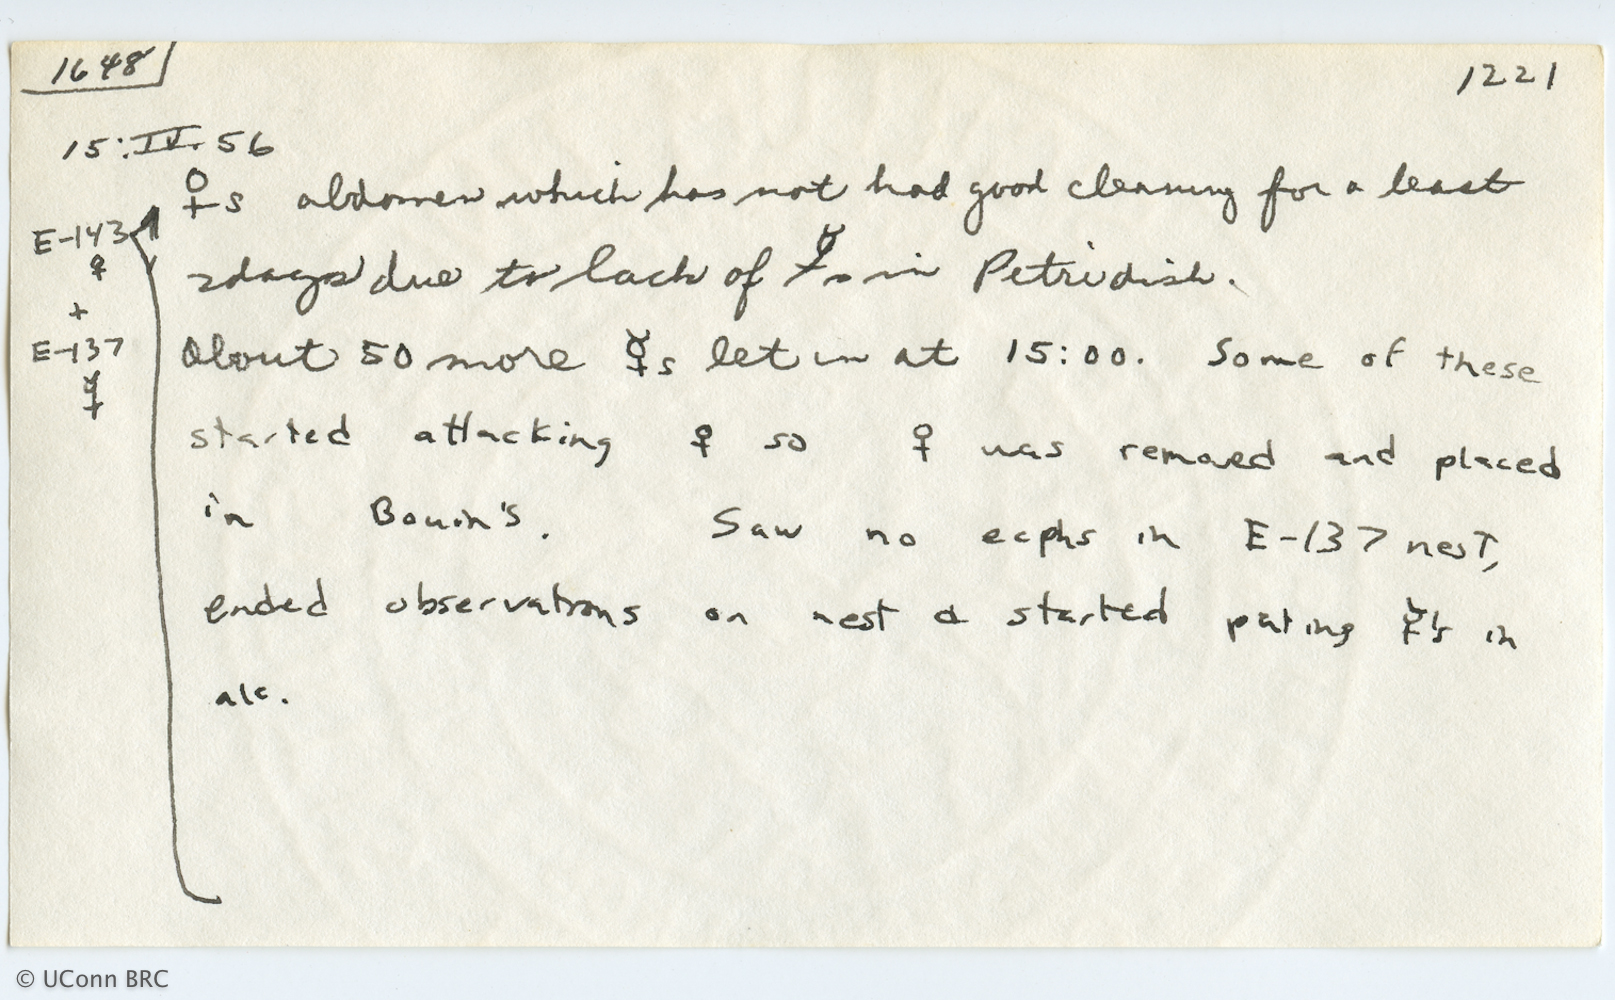 1648
1221
15:IV.56
♀s abdomen which has not had good cleaning for a least
2days due to lack of ☿s in Petri dish.
About 50 more ☿s let in at 15:00. Some of these
started attacking ♀ so ♀ was removed and placed
in Bouin's. Saw no ecphs in E-137 nest,
ended observations on nest & started puting ☿'s in
alc.
E-143
♀
+
E-137
☿
© UConn BRC